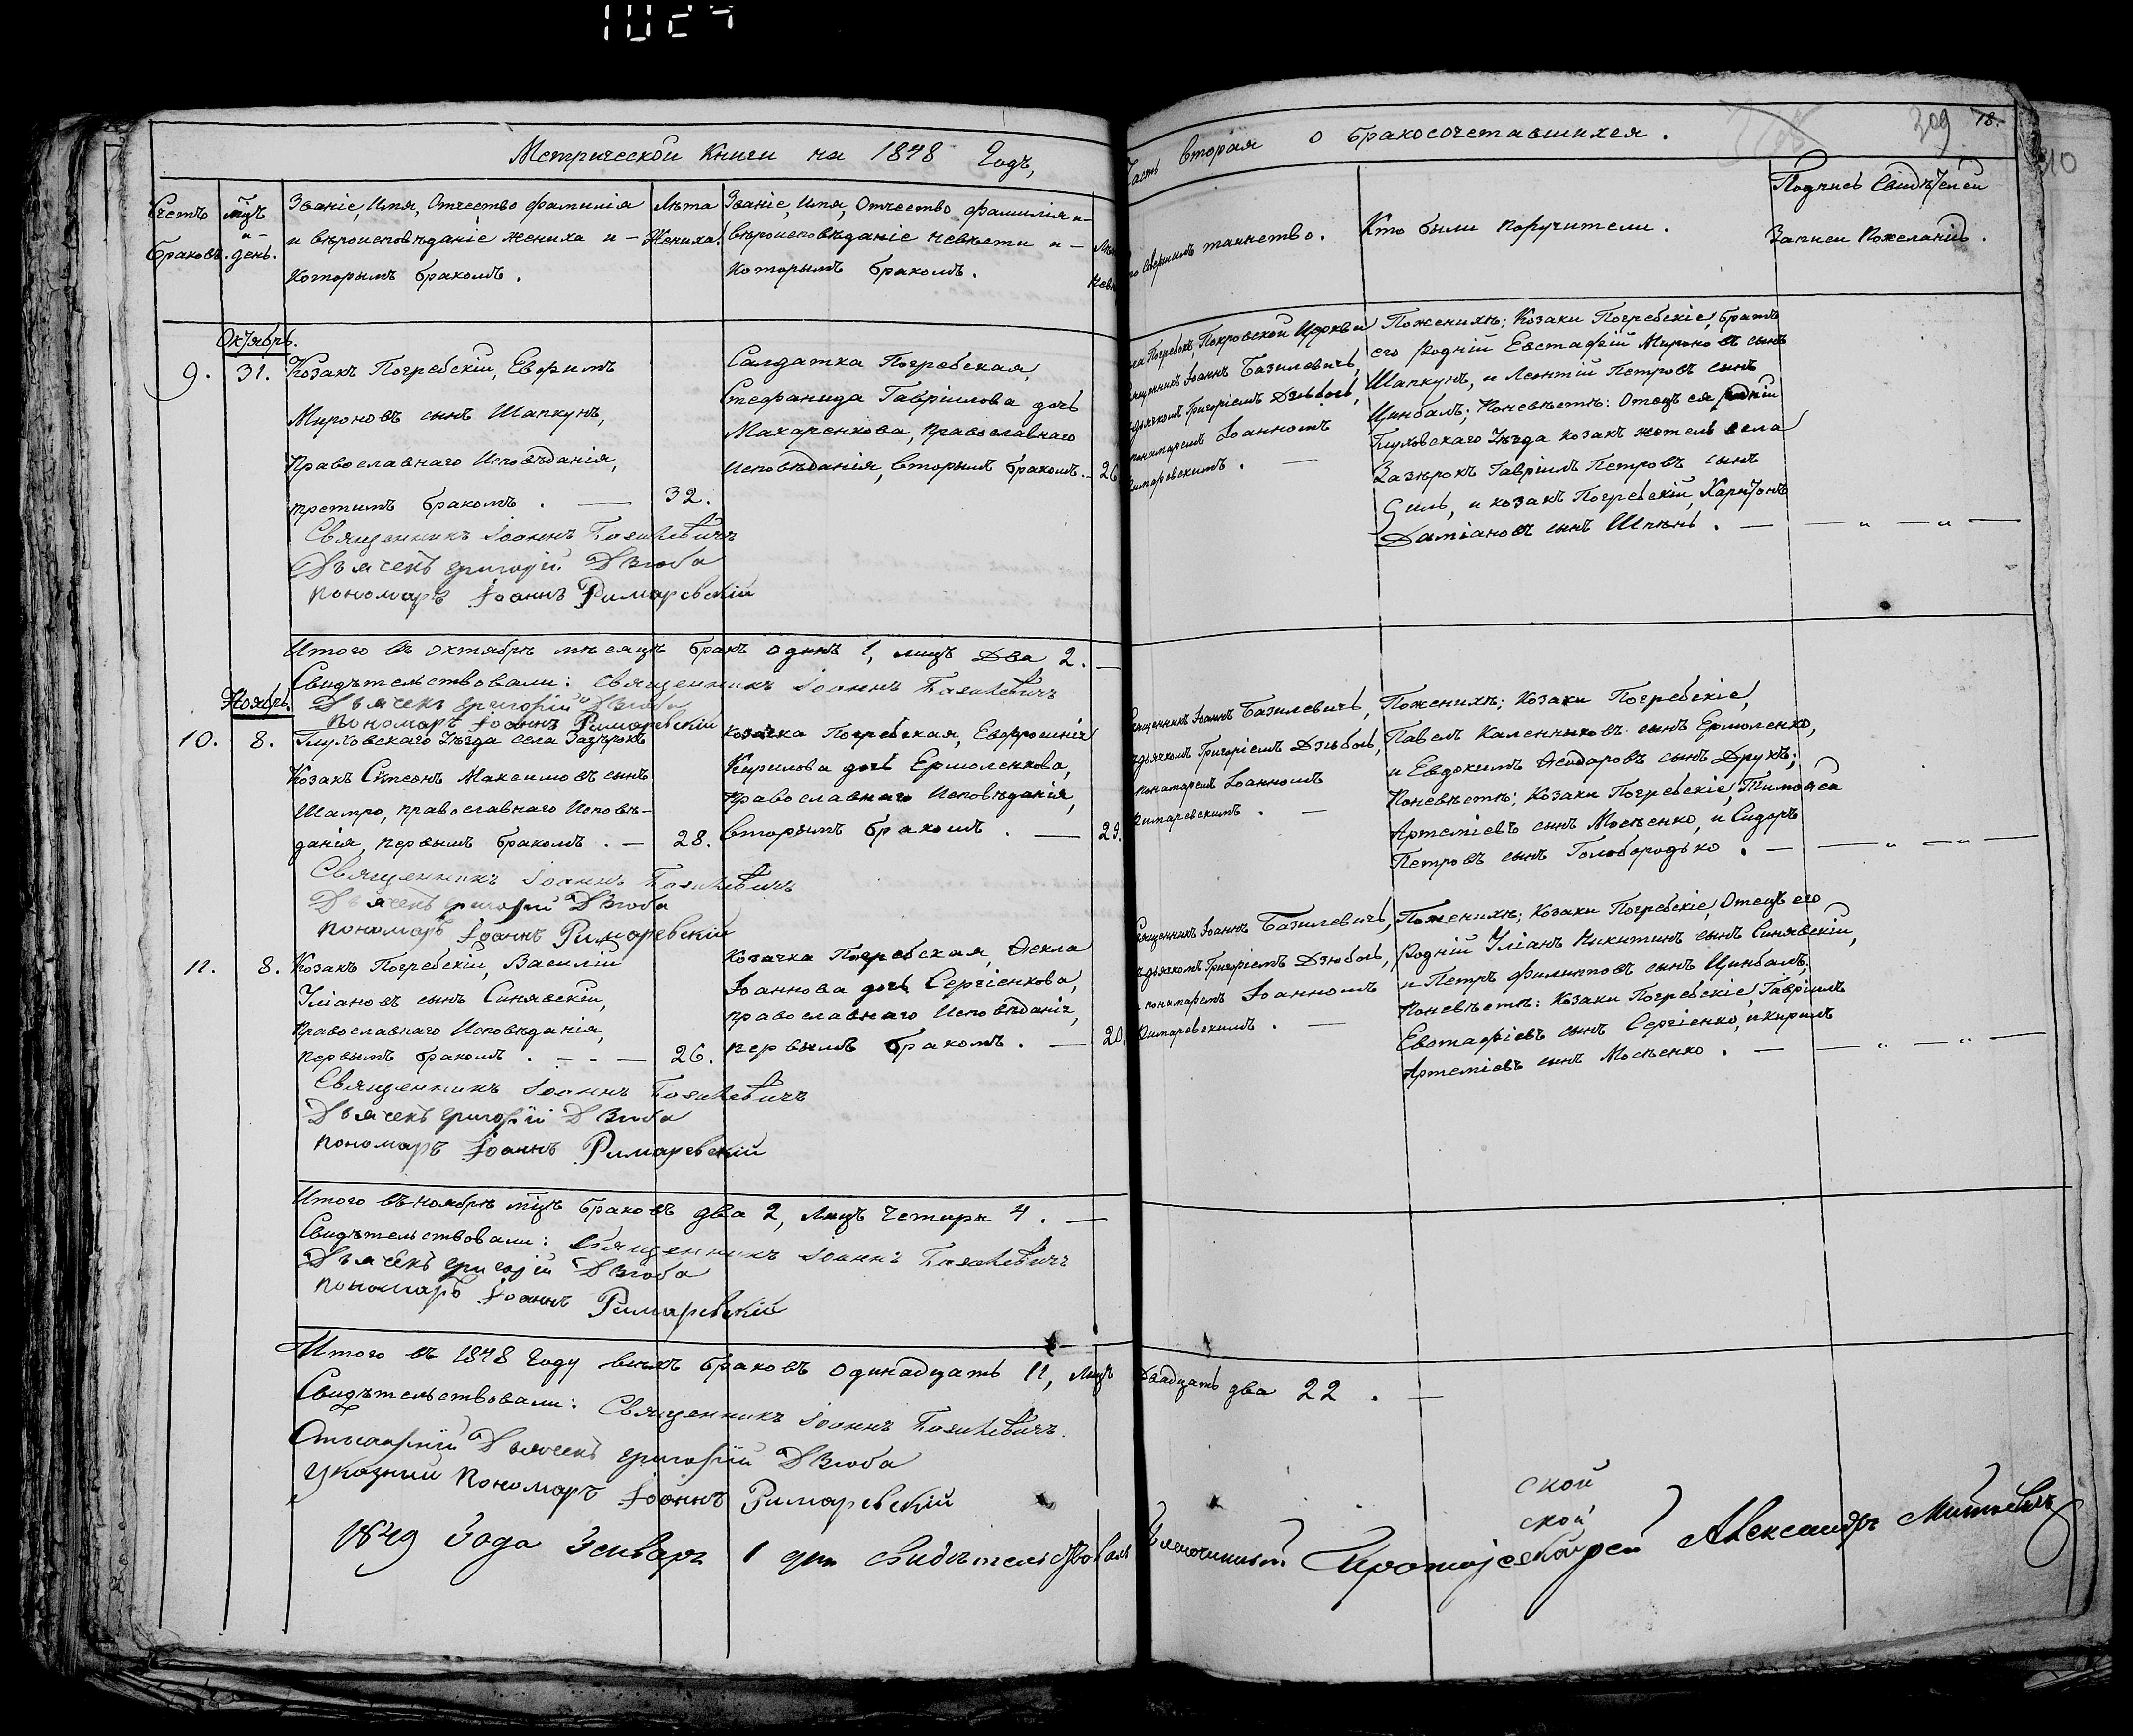 Метрической Книги на 1848 Годъ,
Счетъ Браковъ.
мцъ и день.
Званіе, Имя, Отчество фамилія
и вѣроисповѣданіе жениха и
которымъ бракомъ.
Лѣта Жениха.
Званіе, Имя, Отчество фамилія и
вѣроисповѣданіе невѣсти и
которымъ бракомъ.
Октябрь.
9. 31. Козакъ Погребскій, Евфимъ
Мироновъ сынъ Шапкунъ,
Православнаго Исповѣданія,
третимъ бракомъ. — 32.
Салдатка Погребская,
Стефанида Гавріилова дочь
Макаренкова, православнаго
исповѣданія, вторымъ бракомъ. 26
Священникъ Іоаннъ Базилевичъ
Дьячекъ Григорій Дзюба
пономарь Іоаннъ Римаревскій
Итого въ октябрѣ мѣсяцѣ бракъ одинъ 1, лицъ Два 2. —
Свидѣтельствовали: Священникъ Іоаннъ Базилевичъ
Дьячекъ Григорій Дзюба
пономарь Іоаннъ Римаревскій
Ноябрь.
10. 8. Глуховскаго Уѣзда села Зазѣрокъ
Козакъ Симеонъ Максимовъ сынъ
Шатро, православнаго Исповѣ-
данія, первымъ бракомъ. — 28.
козачка Погребская, Евфросинія
Кирилова дочь Ермоленкова,
православнаго Исповѣданія,
вторымъ бракомъ. — 29.
Священникъ Іоаннъ Базилевичъ
Дьячекъ Григорій Дзюба
пономарь Іоаннъ Римаревскій
11. 8. Козакъ Погребскій, Василій
Уліановъ сынъ Синявскій,
Православнаго Исповѣданія,
первымъ бракомъ. — 26.
козачка Погребская, Ѳекла
Іоаннова дочь Сергіенкова,
православнаго Исповѣданія,
первымъ бракомъ. — 20.
Священникъ Іоаннъ Базилевичъ
Дьячекъ Григорій Дзюба
пономарь Іоаннъ Римаревскій
Итого въ ноябрѣ мцѣ браковъ два 2, лицъ четыри 4. —
Свидѣтельствовали: Священникъ Іоаннъ Базилевичъ
Дьячекъ Григорій Дзюба
пономарь Іоаннъ Римаревскій
Итого въ 1848 году всѣхъ браковъ одинадцать 11, лицъ двадцать два 22. —
Свидѣтельствовали: Священникъ Іоаннъ Базилевичъ.
Дьячекъ Григорій Дзюба
Указный пономарь Іоаннъ Римаревскій
1849 Года Генваря 1 дня свидѣтельствовалъ Благочинный Протоіерей Александръ
Часть вторая о бракосочетавшихся.
309 78.
310
таинство.
Кто были поручители.
Подпись Свидѣтелей
Записи Пожеланію.
Погребокъ, Покровской Церкви
Священникъ Іоаннъ Базилевичъ,
дьячкомъ Григоріемъ Дзюбою,
пономаремъ Іоанномъ
Римаревскимъ. —
Поженихѣ; Козаки Погребскіе, братъ
его родній Евстафій Мироновъ сынъ
Шапкунъ, и Леонтій Петровъ сынъ
Цинбалъ; Поневѣстѣ: Отецъ ея родній
Глуховскаго Уѣзда козакъ житель села
Зазѣрокъ Гавріилъ Петровъ сынъ
и козакъ Погребскій, Харитонъ
Даміановъ сынъ Шпѣнь. —
Священникъ Іоаннъ Базилевичъ,
дьячкомъ Григоріемъ Дзюбою,
пономаремъ Іоанномъ
Римаревскимъ. —
Поженихѣ; Козаки Погребскіе,
Павелъ Каленниковъ сынъ Ермоленко,
и Евдокимъ Ѳеодоровъ сынъ Друхъ;
Поневѣстѣ; Козаки Погребскіе, Тимоѳей
Артеміевъ сынъ Мосѣенко, и Сидоръ
Петровъ сынъ Голобородько. —
Священникъ Іоаннъ Базилевичъ,
дьячкомъ Григоріемъ Дзюбою,
пономаремъ Іоанномъ
Римаревскимъ. —
Поженихѣ; Козаки Погребскіе, Отецъ его
родній Уліанъ Никитинъ сынъ Синявскій,
и Петръ Филиповъ сынъ Цинбалъ;
Поневѣстѣ: Козаки Погребскіе, Гавріилъ
Евстафіевъ сынъ Сергіенко, и Кирилъ
Артеміевъ сынъ Мосѣенко. —
ской
ской
ской